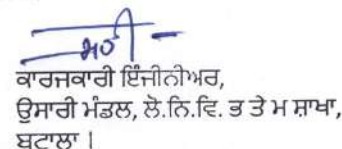 ਸਹੀ
ਕਾਰਜਕਾਰੀ ਇੰਜੀਨੀਅਰ,
ਉਸਾਰੀ ਮੰਡਲ, ਲੋ.ਨਿ.ਵਿ. ਭ ਤੇ ਮ ਸ਼ਾਖਾ,
ਬਟਾਲਾ।